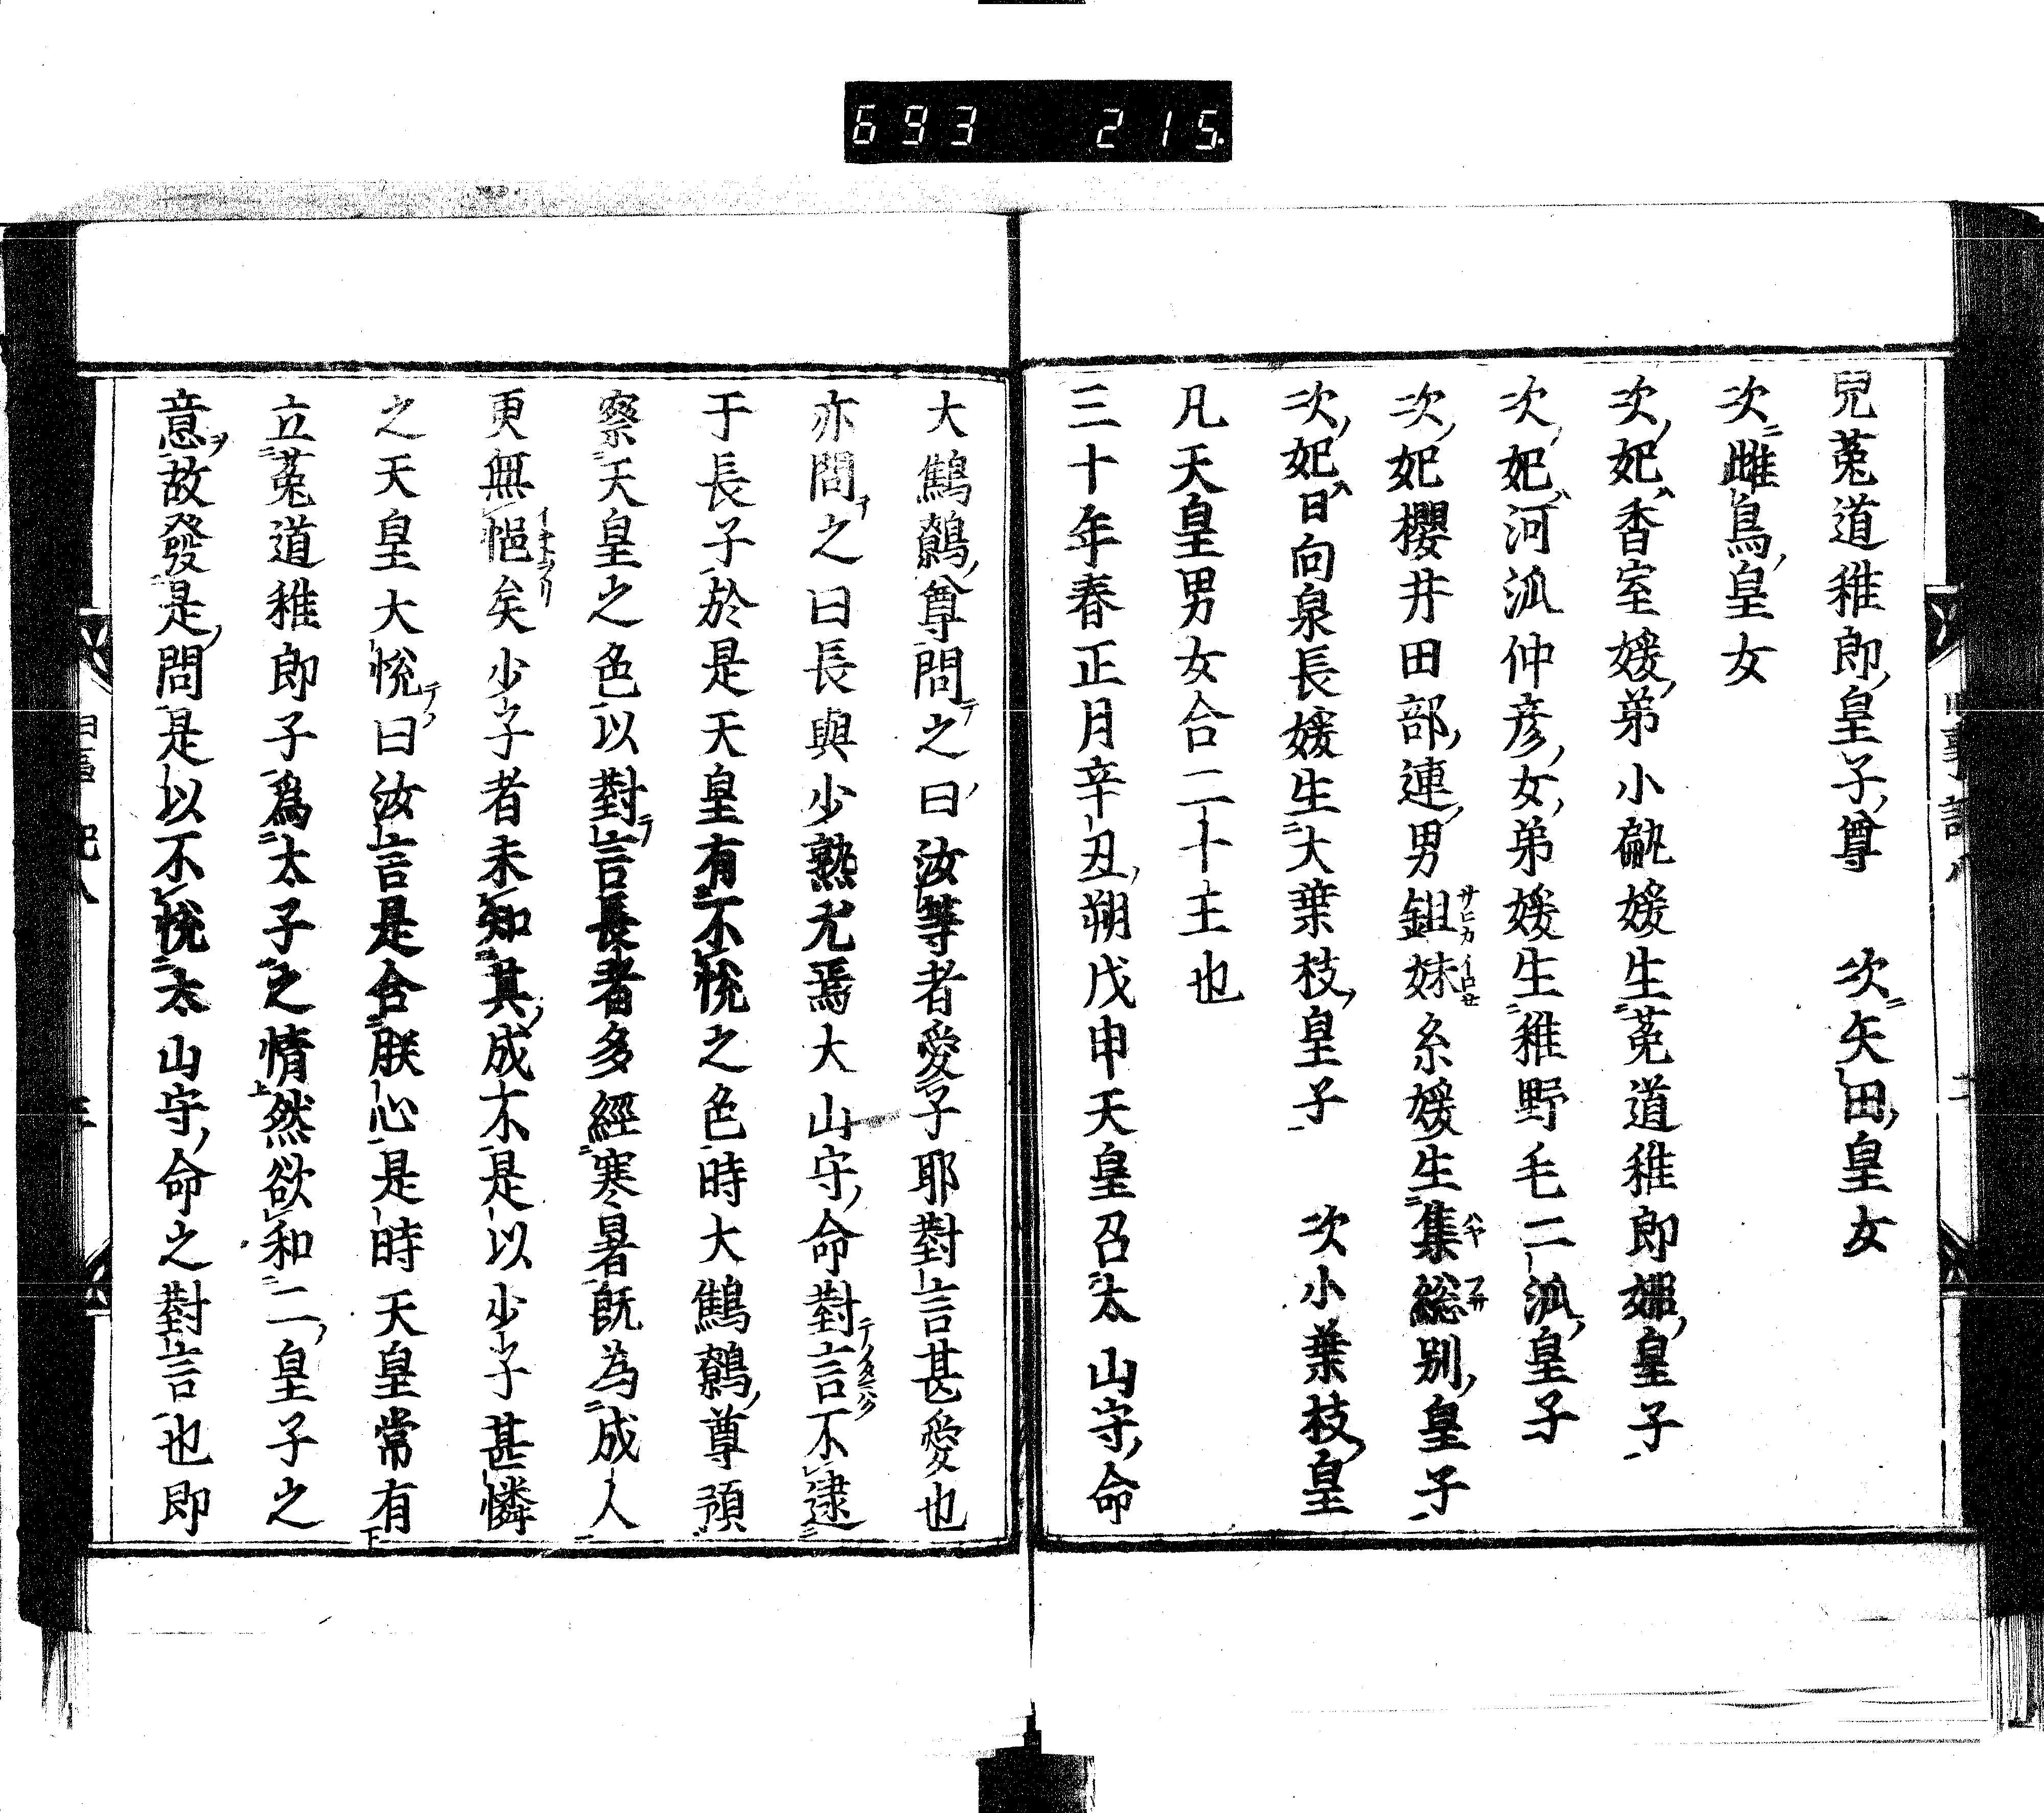 693 215
兒菟道稚郎皇子尊 次矢田皇女
次雌鳥皇女
次妃香室媛弟小甂媛生菟道稚郎姫皇子
次妃河泒仲彦女弟媛生稚野毛二泒皇子
次妃櫻井田部連男鉏妹糸媛生集総别皇子
次妃日向泉長媛生大葉枝皇子 次小葉枝皇
凡天皇男女合二十王也
三十年春正月辛丑朔戊申天皇召太山守命
大鷦鷯尊問之曰汝等者愛子耶對言甚愛也
亦問之曰長與少熟尤焉大山守命對言不逮
于長子於是天皇有不悦之色時大鷦鷯尊預
察天皇之色以對言長者多經寒暑既為成人
更無悒矣少子者未知其成不是以少子甚憐
之天皇大悦曰汝言是合朕心是時天皇常有
立菟道稚郎子爲太子之情然欲和二皇子之
意故發是問是以不悦太山守命之對言也即